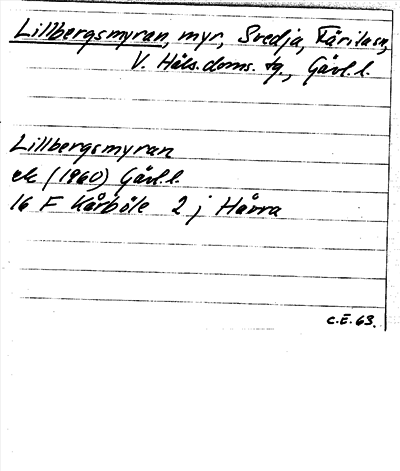 Lillbergsmyran, myr, Svedja, Färila sn,
V. Häls. doms. tg., Gävl. l.
Lillbergsmyran
ek (1960) Gävl. l.
16 F Kårböle 2 j Hårra
C.E. 63.